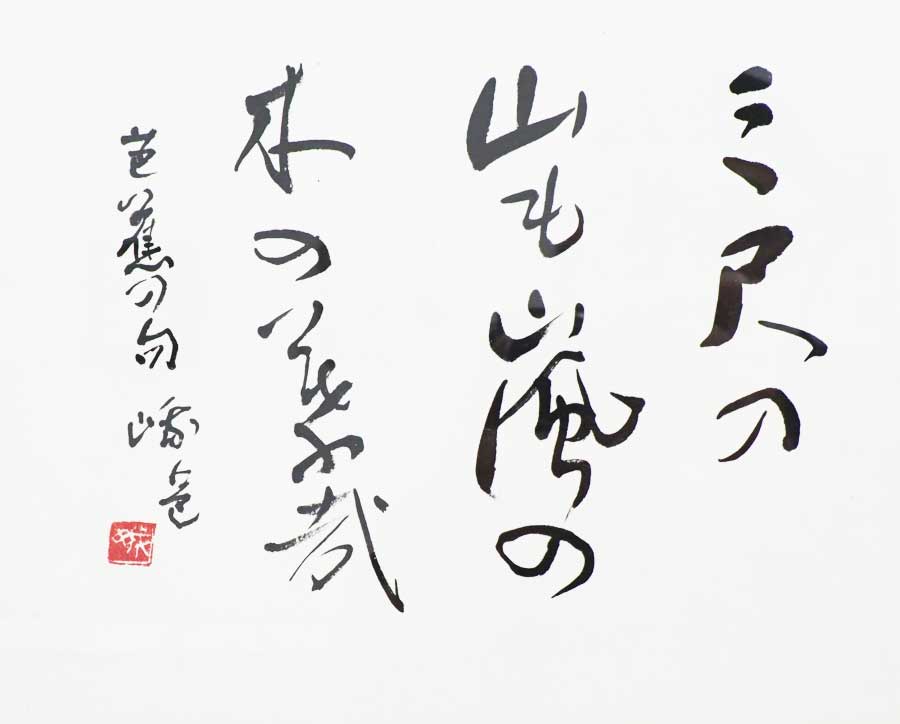 三尺の
山も嵐の
木の葉哉
芭蕉の句